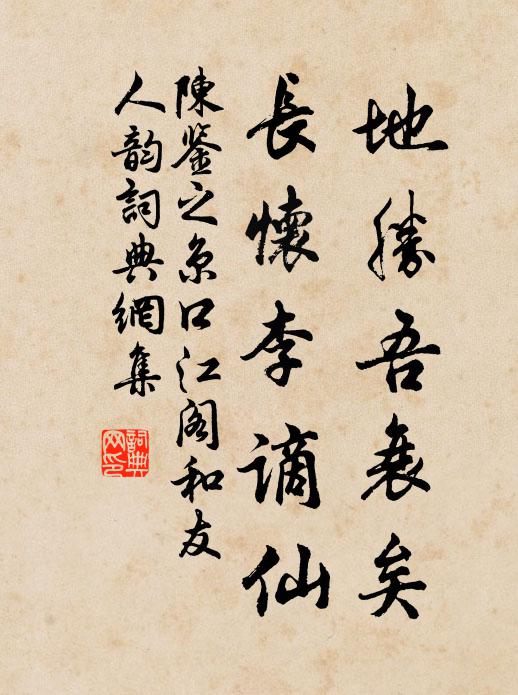 地勝吾衰矣
長懷李謫仙
陳鑒之京口江閣和友
人韵詞典網集
詞典
网印